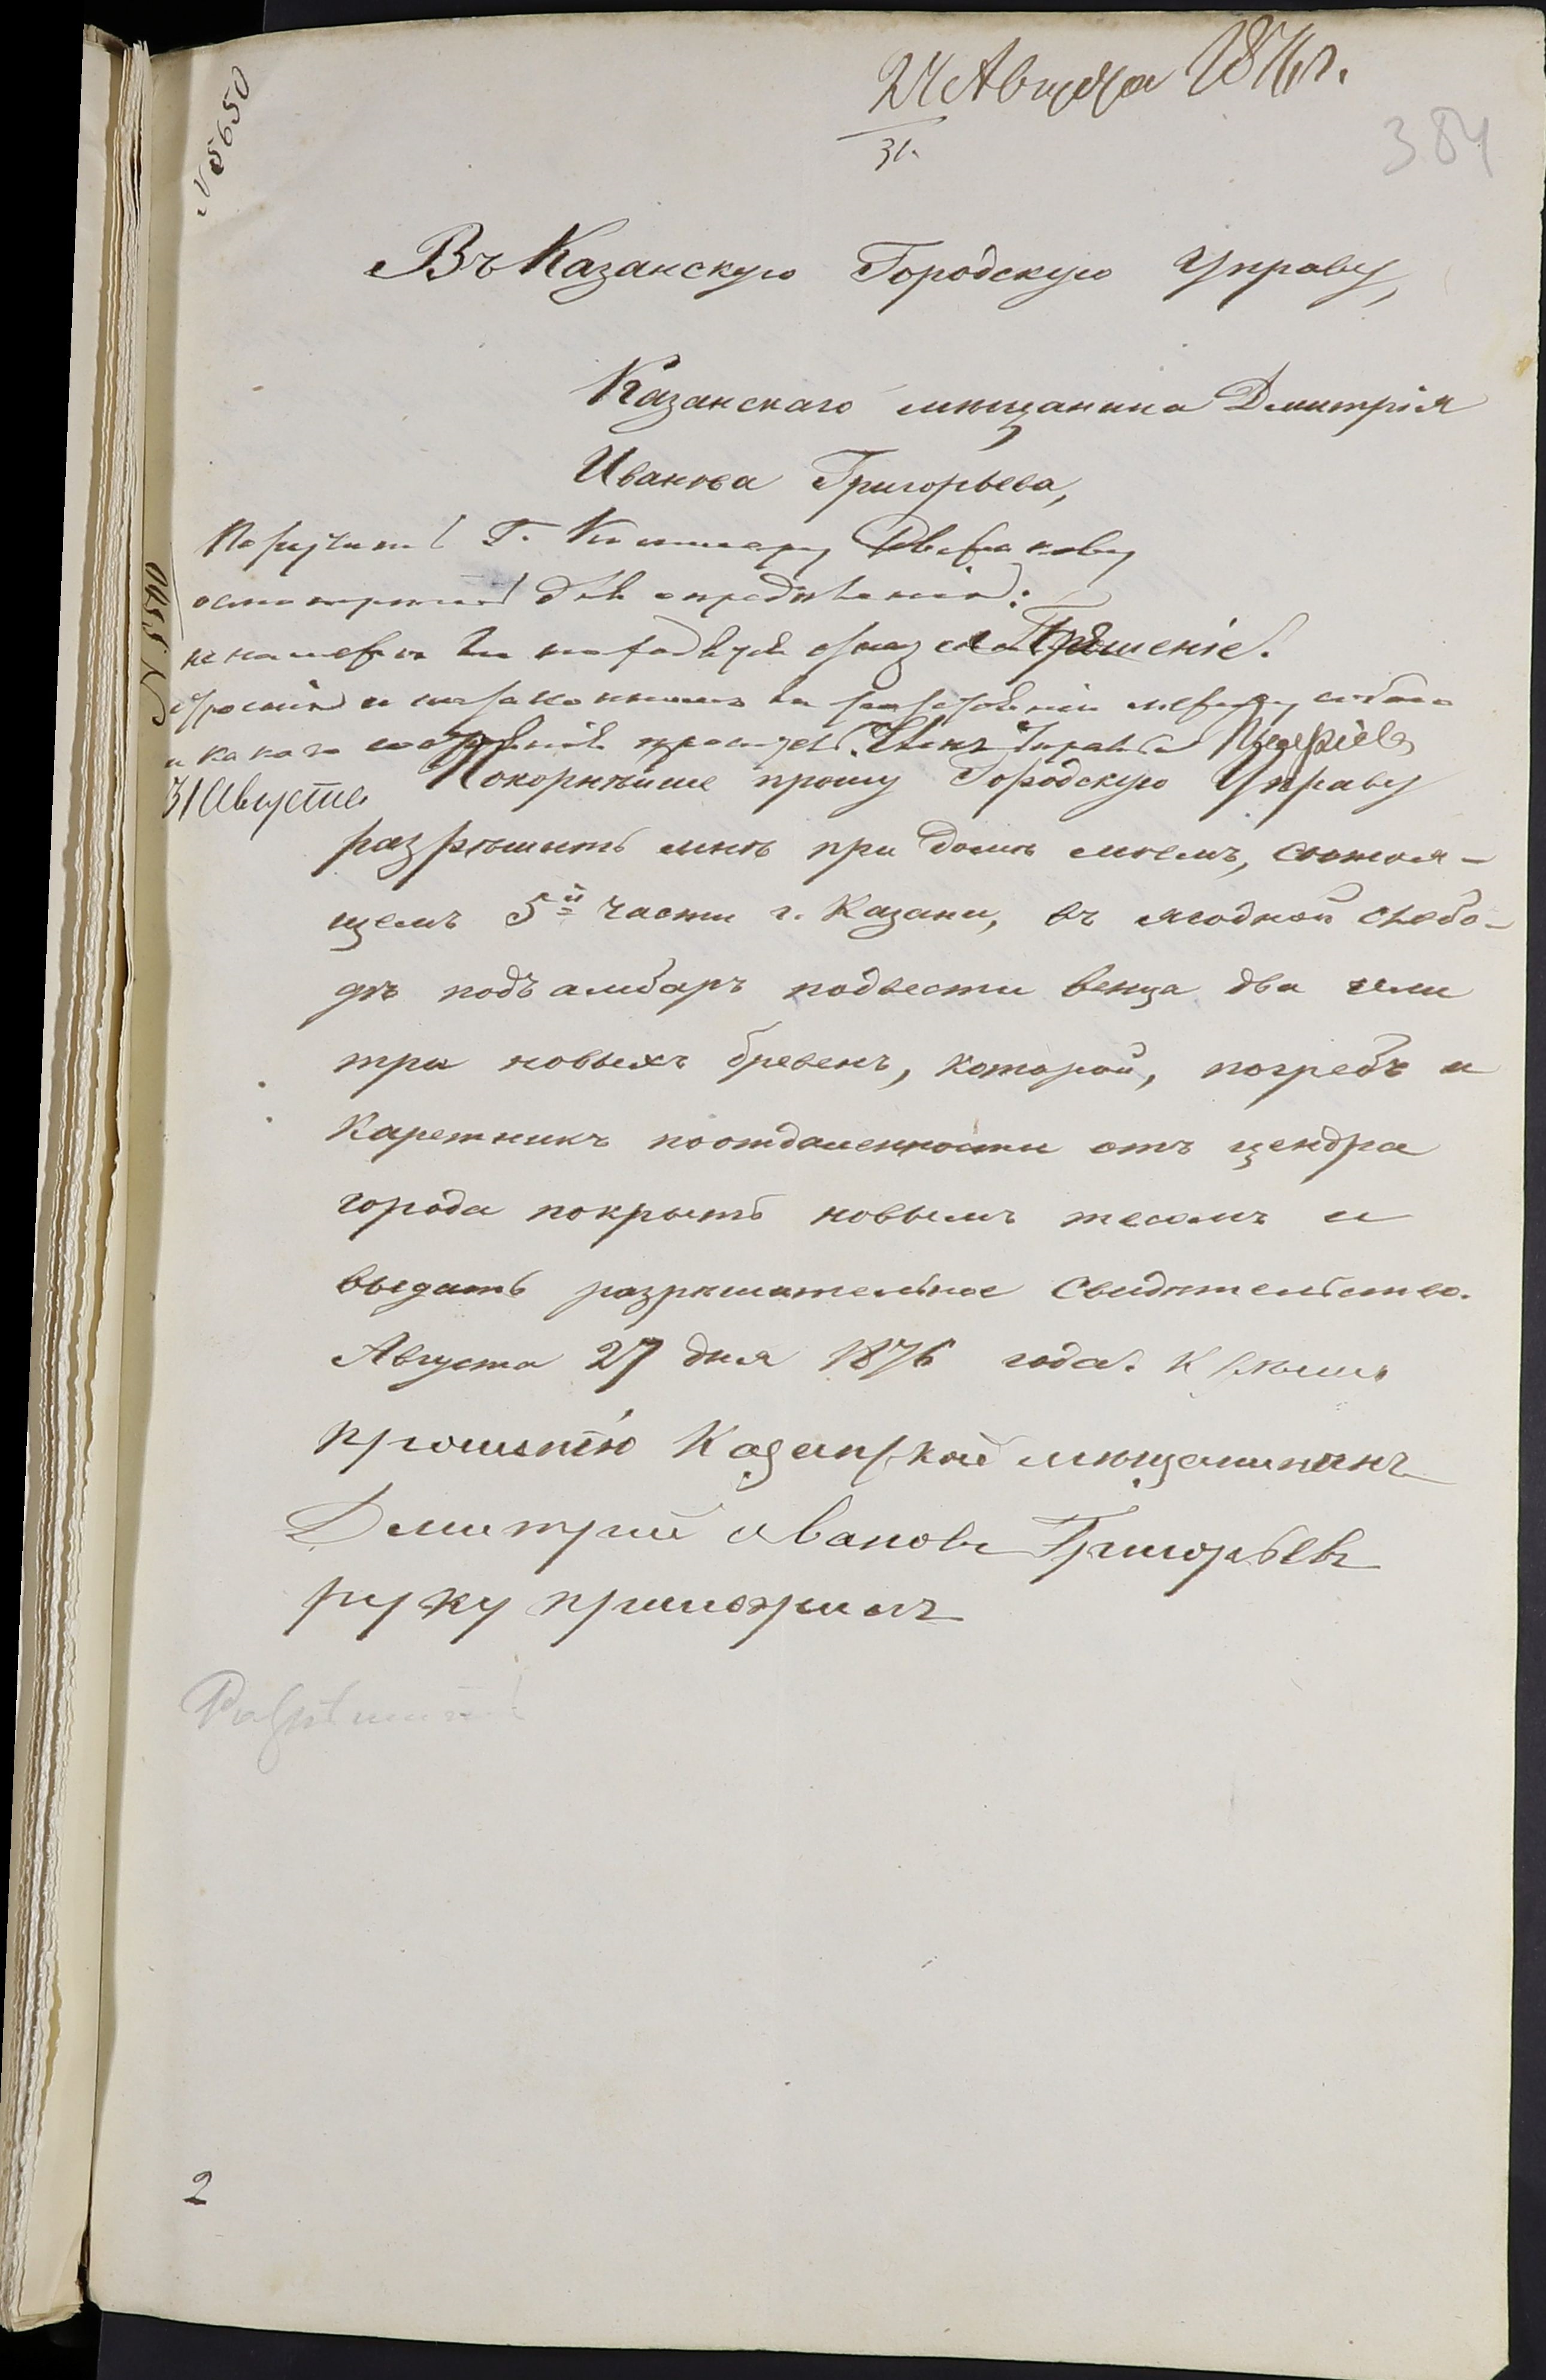 № 5650
27 Августа 1876 г.
31.
384
Въ Казанскую Городскую Управу,
Казанскаго мѣщанина Дмитрія
Иванова Григорьева,
Поручить Г.
осмотрѣть для опредѣленія:
Прошеніе.
и какого Членъ Управы
31 Августа
Покорнѣйше прошу Городскую Управу
разрѣшить мнѣ при домѣ моемъ, состоя-
щемъ 5й части г. Казани, въ ягодной слобо-
дѣ подъ амбаръ подвести венца два или
три новыхъ бревенъ, которой, погребъ и
каретникъ по отдаленности отъ цендра
города покрыть новымъ тесомъ и
выдать разрѣшительное свидѣтельство.
Августа 27 дня 1876 года. К сѣму
прошенію Казанской мѣщанининъ
Дмитрий Ивановъ Григорьевъ
руку приложилъ
Разрѣшить
2